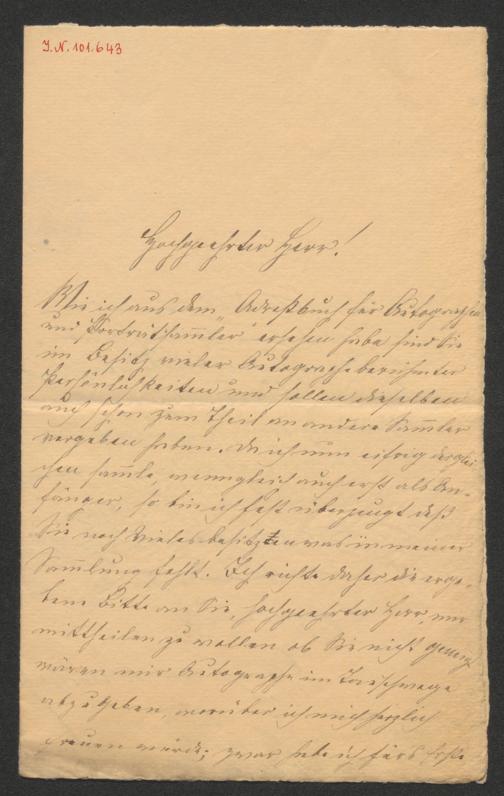 J.N. 101.643
Hochgeehrter Herr!
Wie ich aus dem „Adreßbuch für Autographen
und Portraitsam̅ler" ersehen habe sind Sie
im Besitz vieler Autographe berühmter
Persönlichkeiten und sollen dieselben
auch schon zum Theil an andere Sam̅ler
vergeben haben. Da ich nun eifrig derglei
chen sam̅le, wenngleich auch erst als An-
fänger, so bin ich fest überzeugt daß
Sie noch Vieles besitzen was in meiner
Sam̅lung fehlt. Ich richte daher die erge-
bene Bitte an Sie, hochgeehrter Herr, mir
mittheilen zu wollen ob Sie nicht geneigt
wären mir Autographe im Tauschwege
abzugeben, worüber ich mich herzlich
freuen würde; zwar habe ich fürs Erste